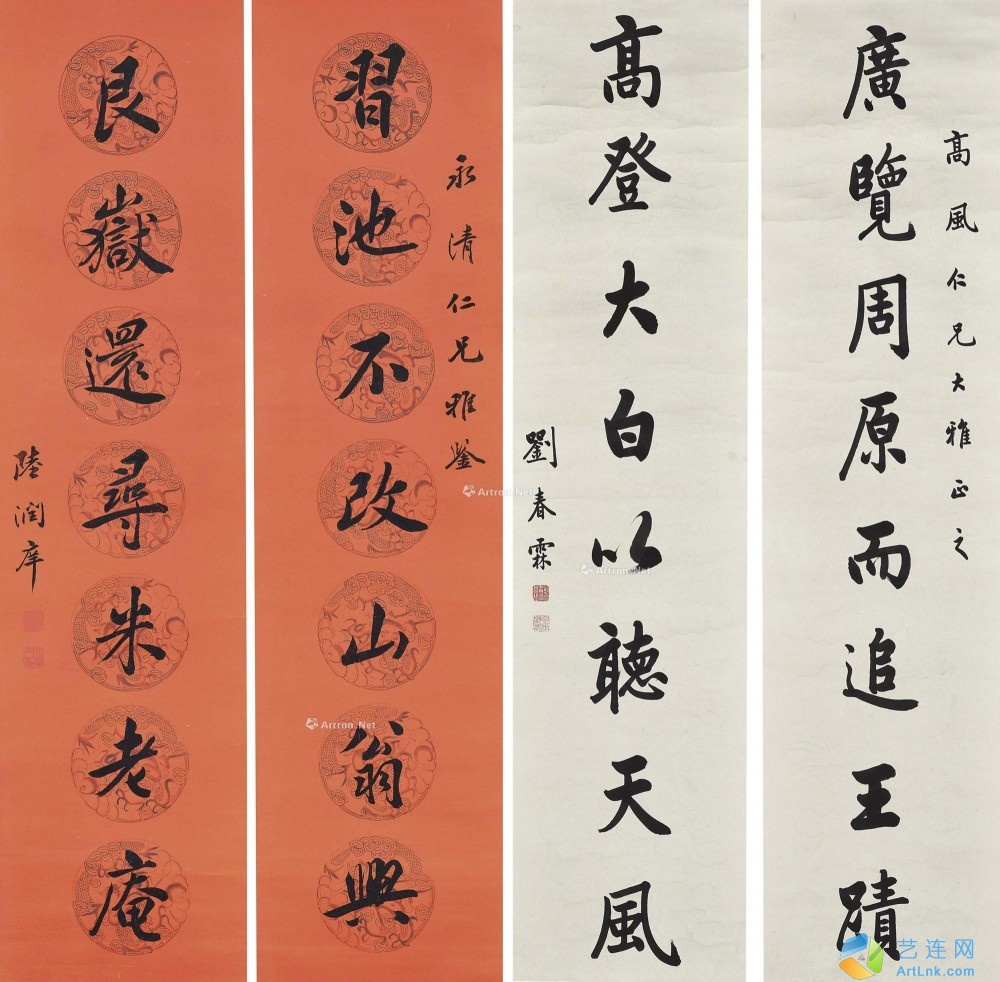 高風仁兄大雅正之
廣覽周原而追王蹟
高登大白以聽天風
劉春霖
永清仁兄雅鉴
習池不改山翁興
艮嶽還尋米老庵
陸潤庠
Artron.Net
Artron.Net
Artron.Net
艺连网
ArtLnk.com